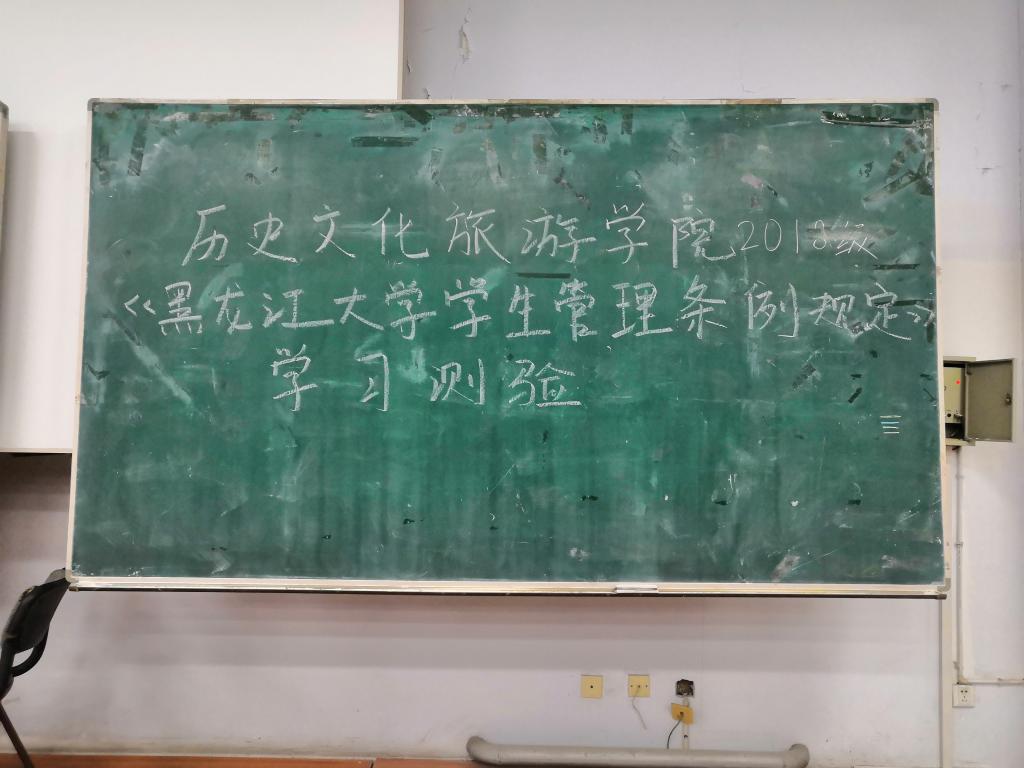 历史文化旅游学院2018级
《黑龙江大学学生管理条例规定》
学习测验